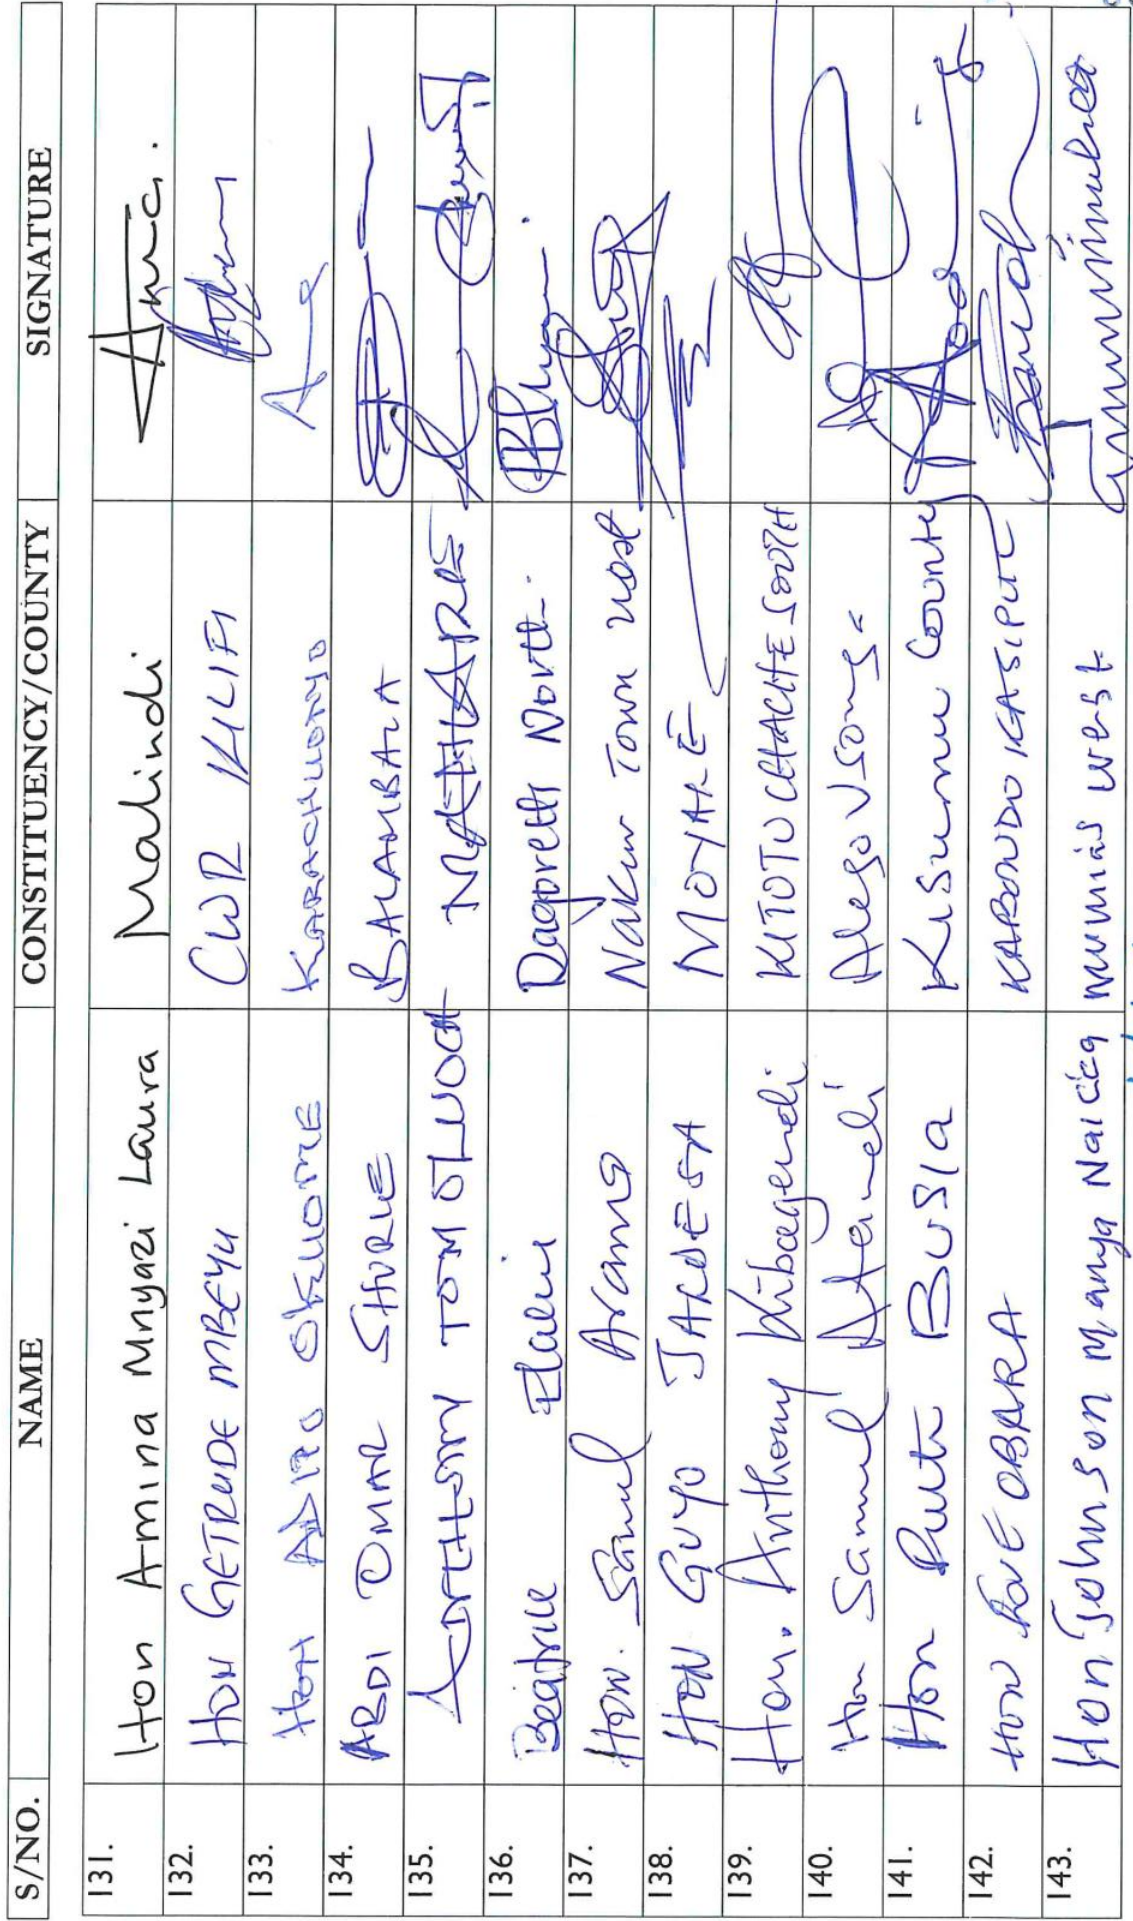 S/NO. NAME CONSTITUENCY/COUNTY SIGNATURE
131. Hon Amina Mnyazi Laura Malindi
132. HON GETRUDE MBEYU CWR KILIFI
133. HON ADIPO OKUOME KARACHUONYO
134. ABDI OMAR SHURIE BALAMBALA
135. ANTHONY TOM OLUOCH MATHARE
136. Beatrice Elachi Dagoretti North.
137. HON. Samuel Arama Nakuru Town West
138. HON GUYO JALDESA MOYALE
139. Hon. Anthony Kibagendi KITUTU CHACHE SOUTH
140. Hon Samuel Atandi Alego Usonga
141. Hon Ruth BUSIA Kisumu County
142. HON EVE OBARA KABONDO KASIPUL
143. Hon Johnson Manya Naicca mumias west